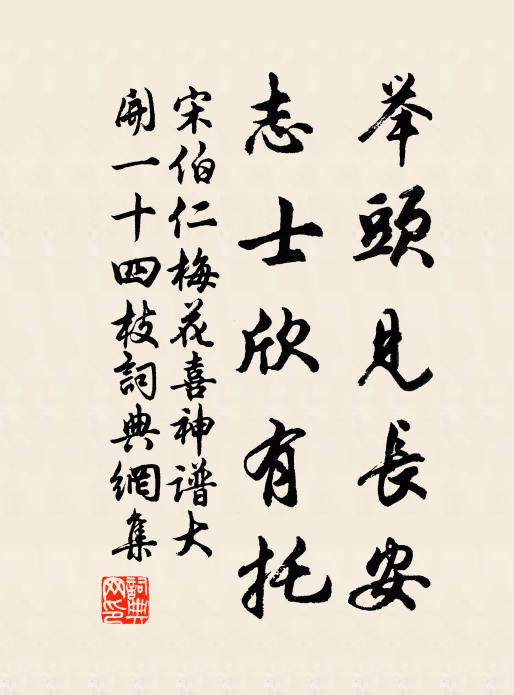 举頭見長安
志士欣有托
宋伯仁梅花喜神谱大
開一十四枝詞典網集
詞典網印